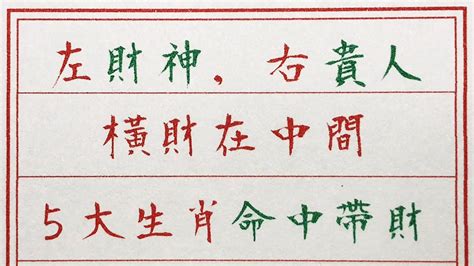 左財神，右貴人
橫財在中間
5大生肖命中帶財